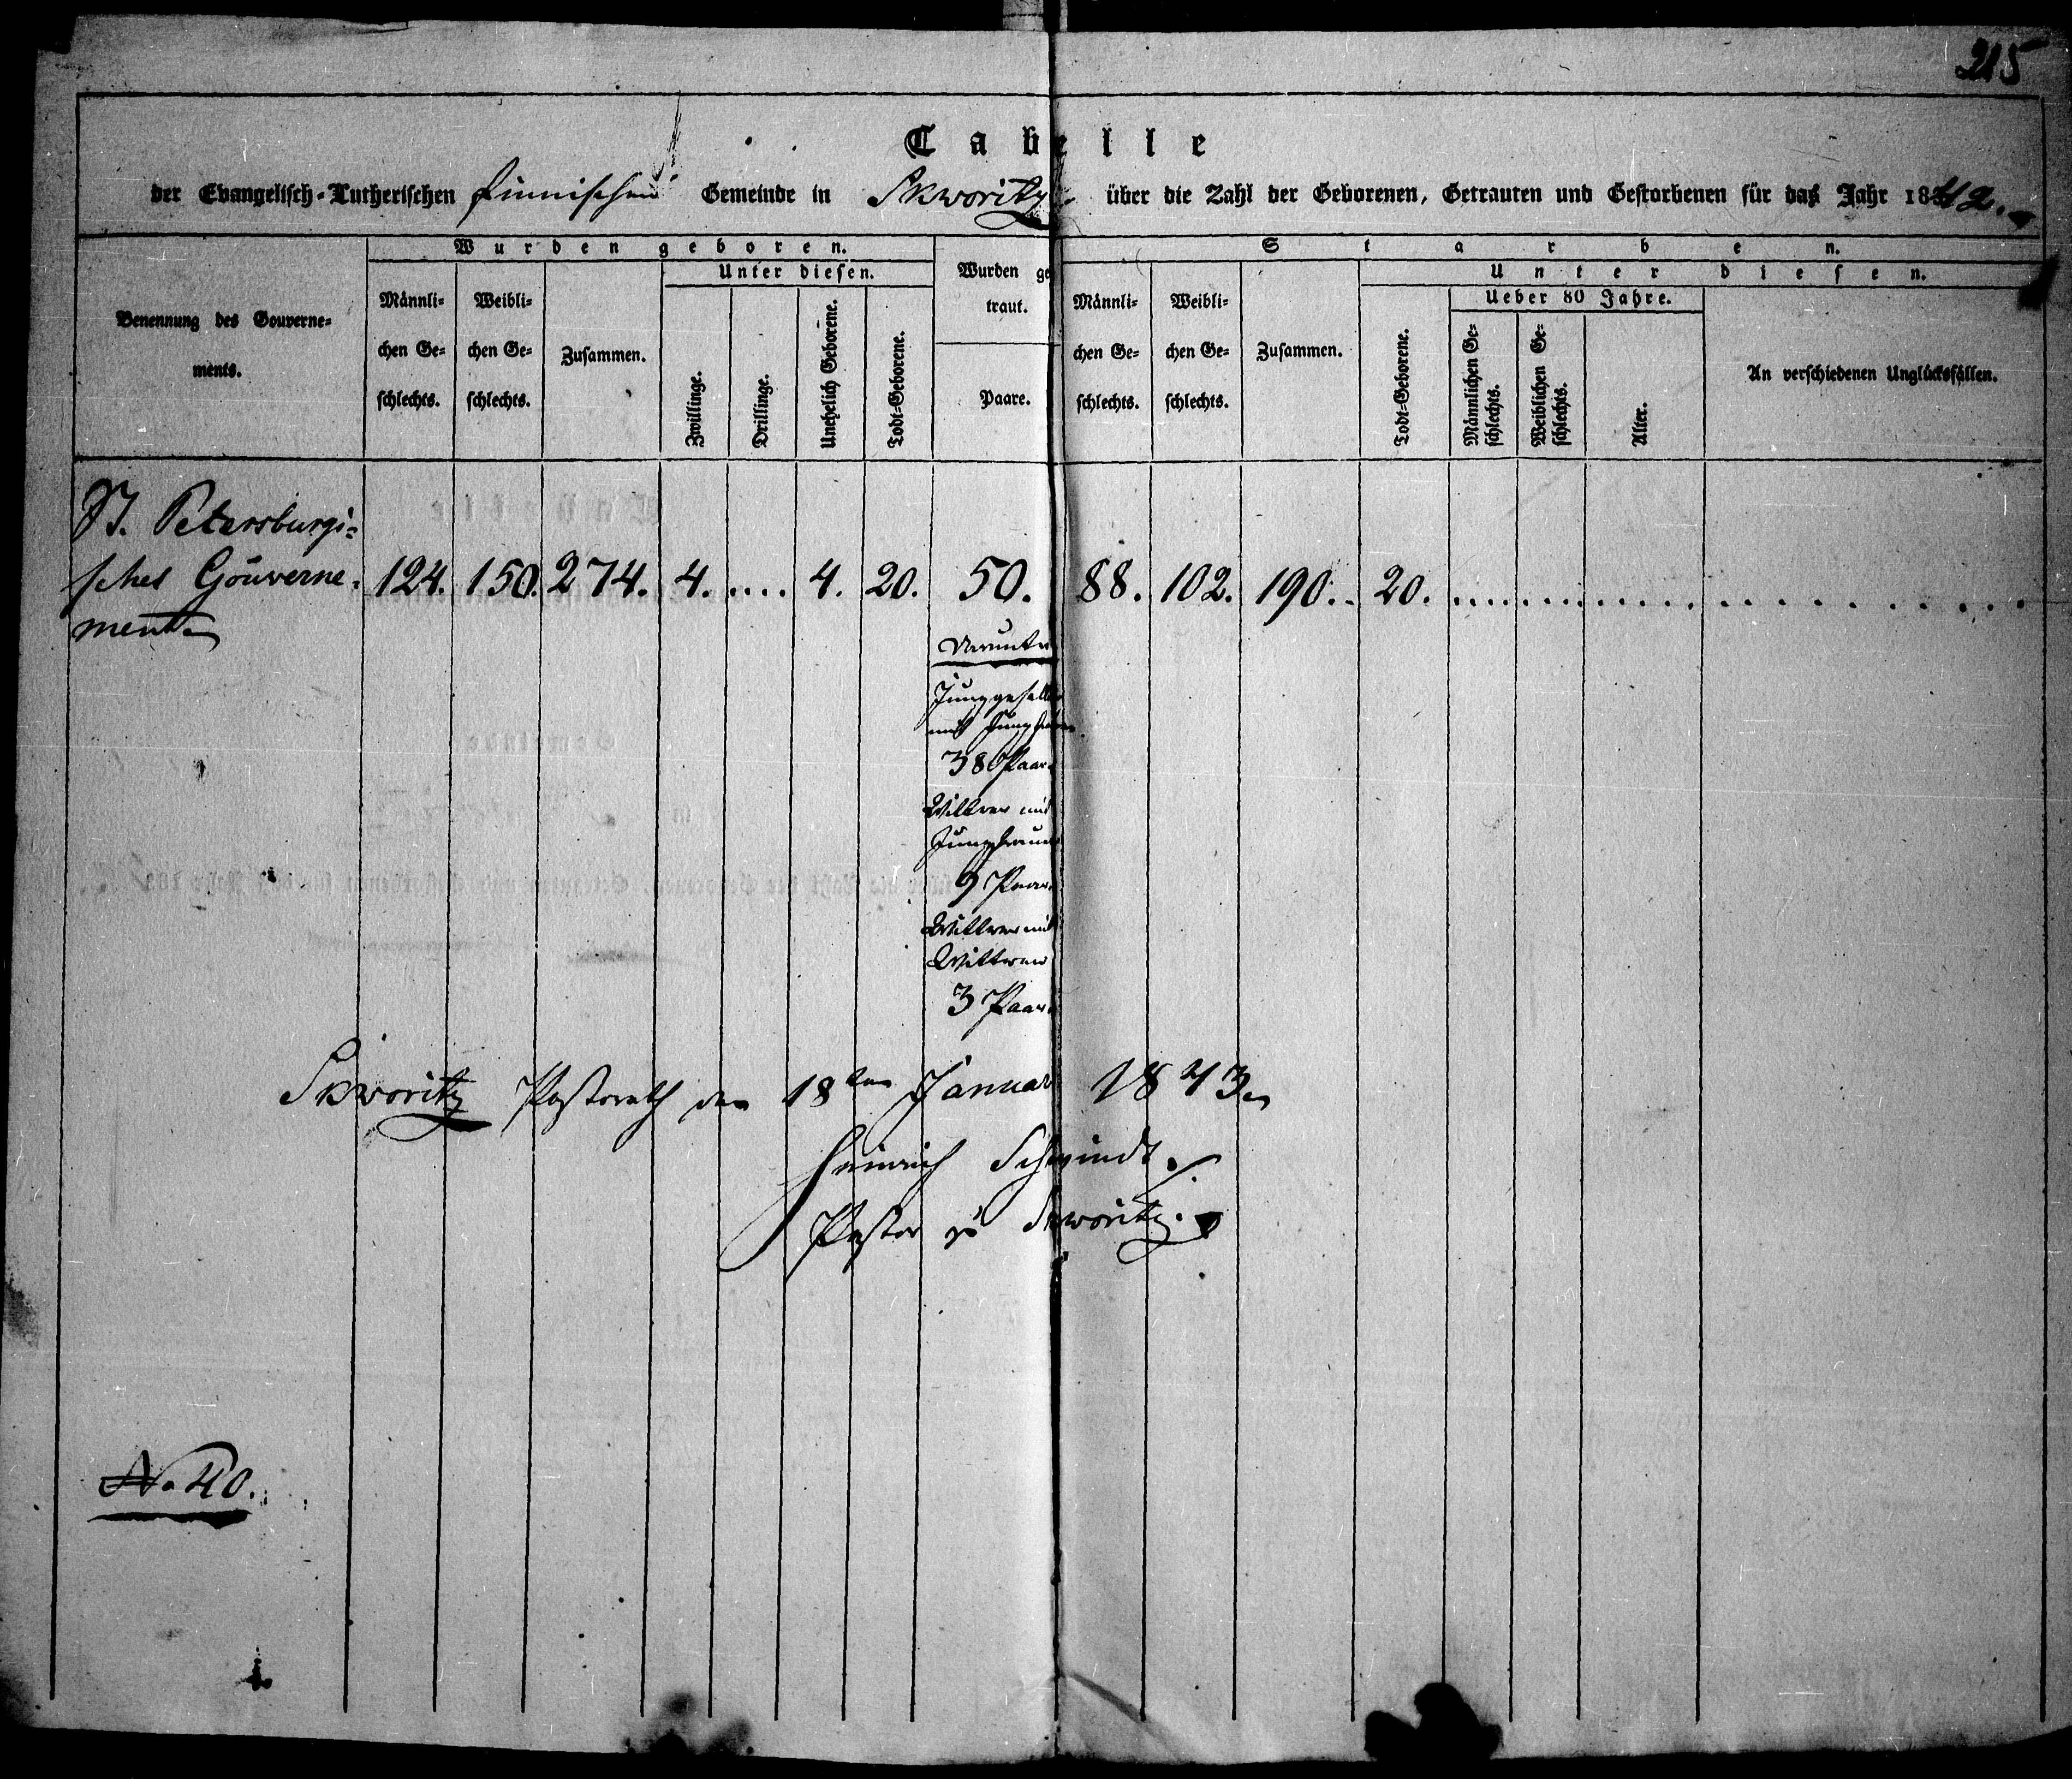 215
Tabelle
der Evangelisch-Lutherischen finnischen Gemeinde in Skworitz über die Zahl der Geborenen, Getrauten und Gestorbenen für das Jahr 1842.
Wurden geboren.
Starben.
Unter diesen.
Wurden ge
traut.
Unter diesen.
Ueber 80 Jahre.
Benennung des Gouverne-
ments.
Männli-
chen Ge-
schlechts.
Weibli-
chen Ge-
schlechts.
Zusammen.
Zwillinge.
Drillinge.
Unehelich Geborene.
Todt-Geborene.
Paare.
Männli-
chen Ge-
schlechts.
Weibli-
chen Ge-
schlechts.
Zusammen.
Todt-Geborene.
Männlichen Ge-
schlechts.
Weiblichen Ge-
schlechts.
Alter.
An verschiedenen Unglücksfällen.
St. Petersburgi-
sches Gouverne-
ment.
124. 150. 274. 4. .... 4. 20. 50. 88. 102. 190. 20.
Darunter
Junggesellen
mit Jungfrauen
38 Paar
Wittwer mit
Jungfrauen
9 Paar
Wittwer mit
Wittwen
3 Paar
Skworitz Pastorath den 18ten Januar 1843.
Heinrich Schwindt.
Pastor zu Skworitz.
No 40.